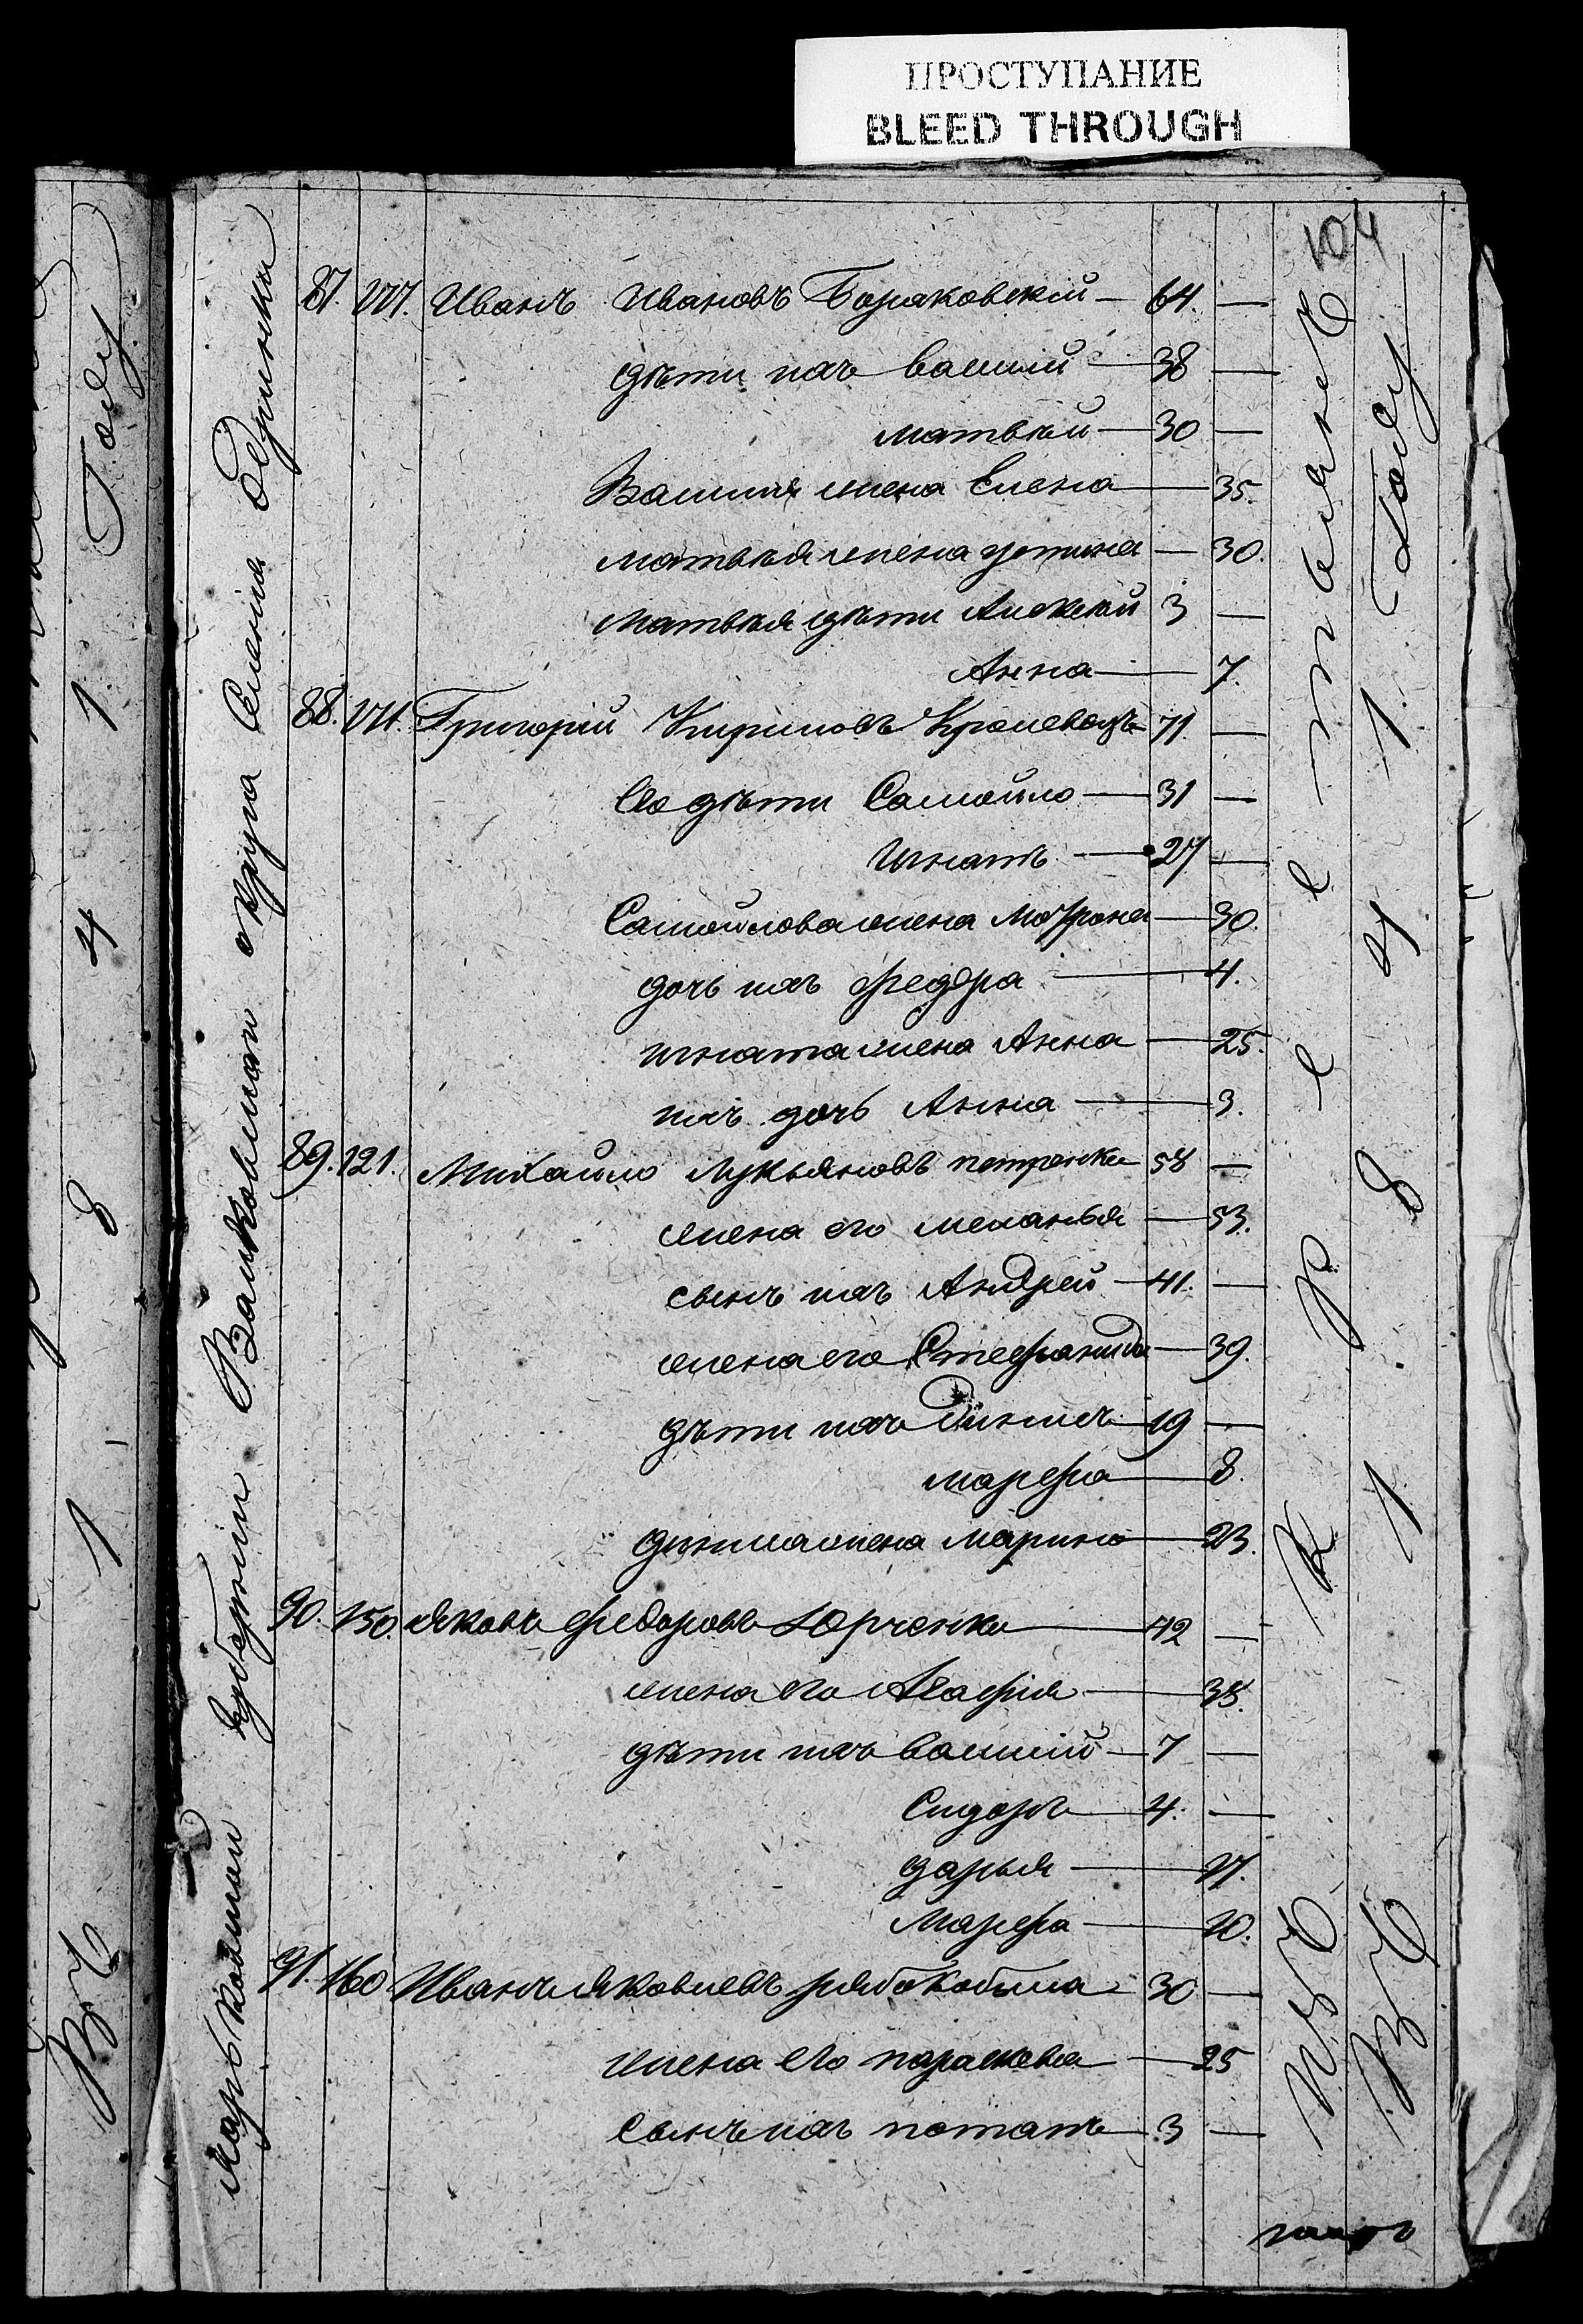 ПРОСТУПАНИЕ
BLEED THROUGH
104
87. Иванъ Ивановъ Бораковскій 64. —
дѣти ихъ Василій 38 —
Матвѣй 30 —
Василія жена Елена 35.
Матвѣя жена Устина 30.
Матвѣя дѣти Алексѣй 3 —
Анна 7.
88. Григорій Кириловъ Кролевецъ 71 —
Его дѣти Самойло 31 —
Игнатъ 27 —
Самойлова жена Мотрона 30.
дочь ихъ Федора 4.
Игната жена Анна 25.
ихъ дочь Анна 3.
89. 121. Михайло Лукьяновъ Петренко 58 —
жена его Меланья 53.
сынъ ихъ Андрей 41. —
жена его Стефанида 39.
дѣти ихъ Динисъ 19 —
Марфа 8.
Диниса жена Марина 23.
90. 150. Яковъ Федоровъ Юрченко 42 —
жена его Агафія 38.
дѣти ихъ Василій 7 —
Сидоръ 4. —
Дарья
Марфа 10.
91. 160 Иванъ Яковлевъ Рябокобыла 30 —
жена его Параскева 25
сынъ ихъ Потапъ 3 —
Харьковской Губерніи Валковскаго округа Селенія
Изъ Крестьянъ
Въ 1841 Году
Въ 1841 Году